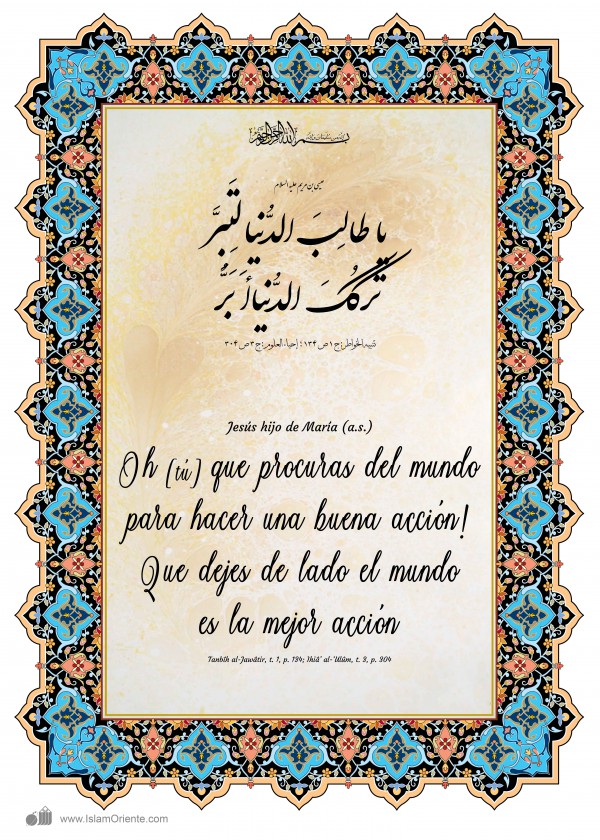 بسم الله الرحمن الرحیم
عیسی بن مریم علیه السلام
یا طالِبَ الدُّنیا لِتَبَرَّ
تَرکُکَ الدُّنیا أَبَرُّ
تنبیه الخواطر: ج ۱ ص ۱۳۴؛ إحیاء العلوم: ج ۳ ص ۳۰۴
Jesús hijo de María (a.s.)
Oh [tú] que procuras del mundo
para hacer una buena acción!
Que dejes de lado el mundo
es la mejor acción
Tanbîh al-Jawâtir, t. 1, p. 134; Ihiâ' al-'Ulûm, t. 3, p. 304
www.IslamOriente.com